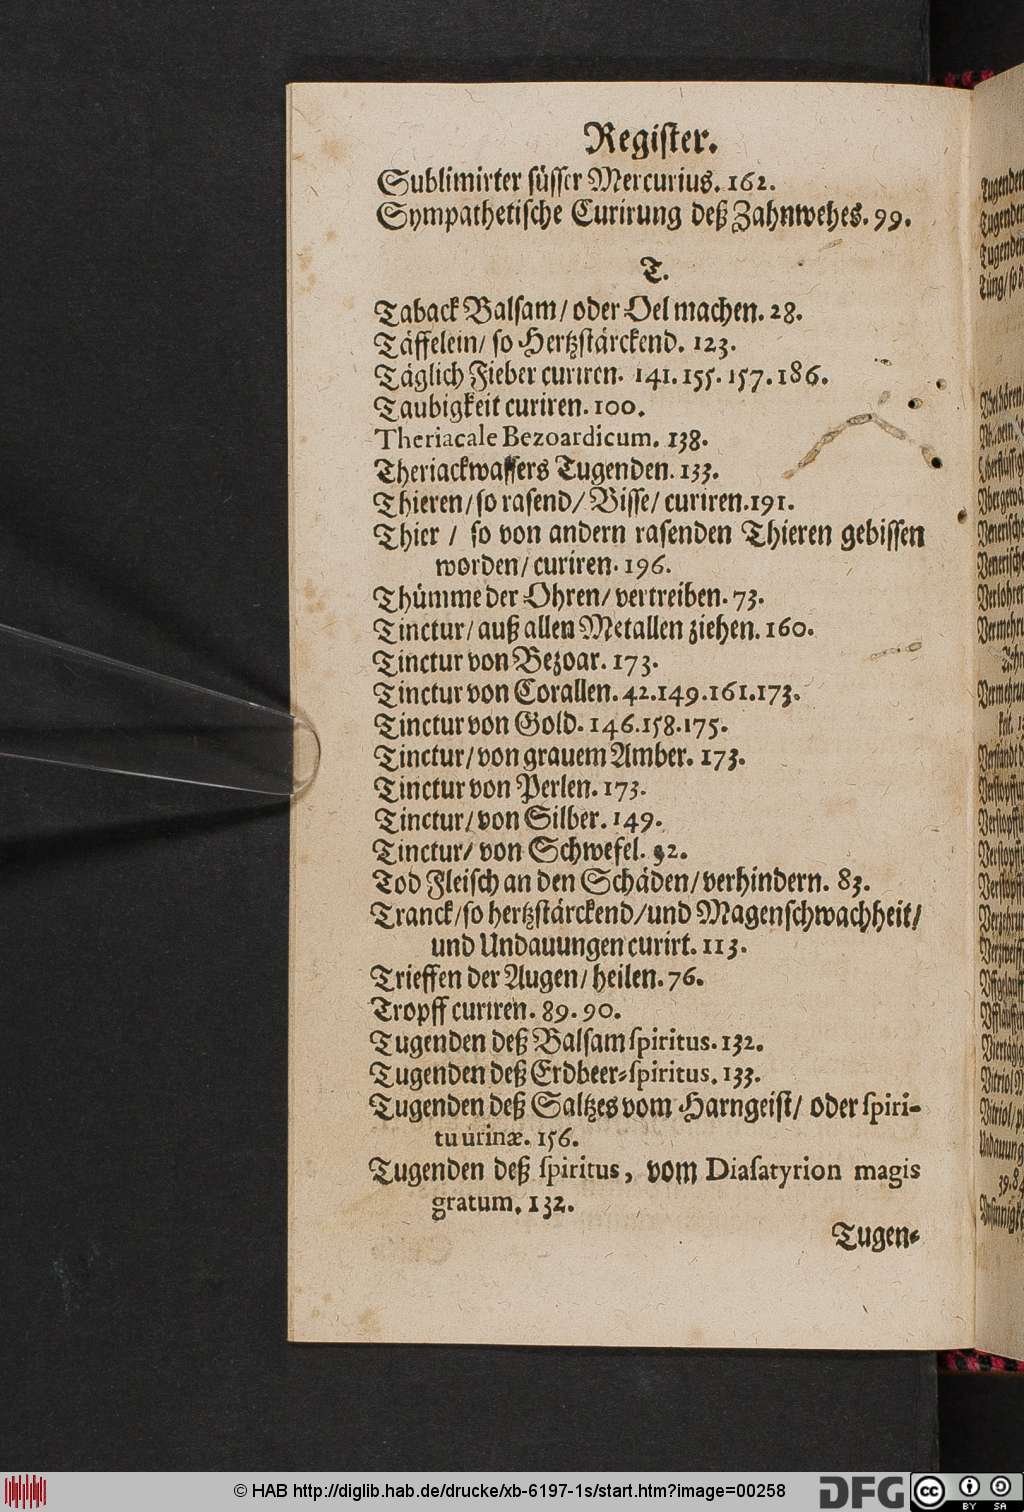 Register.
Sublimirter süsser Mercurius. 162.
Sympathetische Curirung deß Zahnwehes. 99.
T.
Taback Balsam / oder Oel machen. 28.
Täffelein / so Hertzstärckend. 123.
Täglich Fieber curiren. 141. 155. 157. 186.
Taubigkeit curiren. 100.
Theriacale Bezoardicum. 138.
Theriackwassers Tugenden. 133.
Thieren / so rasend / Bisse / curiren. 191.
Thier / so von andern rasenden Thieren gebissen
worden / curiren. 196.
Thümme der Ohren / vertreiben. 73.
Tinctur / auß allen Metallen ziehen. 160.
Tinctur von Bezoar. 173.
Tinctur von Corallen. 42. 149. 161. 173.
Tinctur von Gold. 146. 158. 175.
Tinctur / von grauem Amber. 173.
Tinctur von Perlen. 173.
Tinctur / von Silber. 149.
Tinctur / von Schwefel. 92.
Tod Fleisch an den Schäden / verhindern. 83.
Tranck / so hertzstärckend / und Magenschwachheit /
und Undauungen curirt. 113.
Trieffen der Augen / heilen. 76.
Tropff curiren. 89. 90.
Tugenden deß Balsam spiritus. 132.
Tugenden deß Erdbeer-spiritus. 133.
Tugenden deß Saltzes vom Harngeist / oder spiri-
tu urinæ. 156.
Tugenden deß spiritus, vom Diasatyrion magis
gratum. 132.
Tugen-
© HAB http://diglib.hab.de/drucke/xb-6197-1s/start.htm?image=00258
DFG
cc BY SA